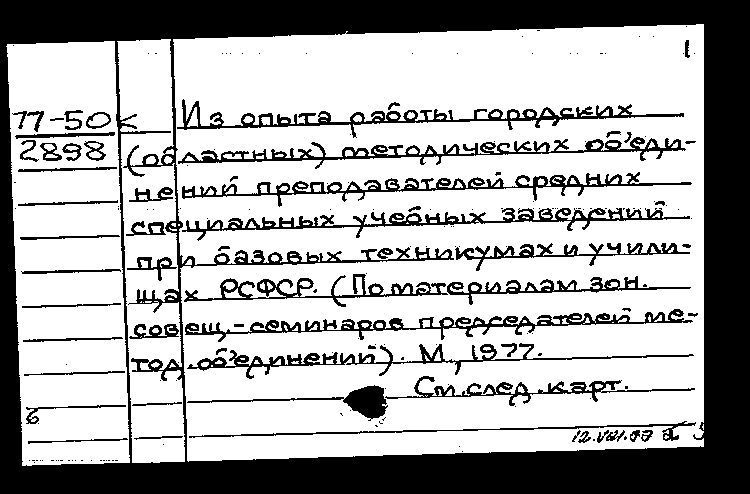 1
77-50К Из опыта работы городских
2898 (областных) методических об'еди-
нений преподавателей средних
специальных учебных заведений
при базовых техникумах и учили-
щах РСФСР. (По материалам зон.
совещ.-семинаров председателей ме-
тод. об'единений). М., 1977.
См. след. карт.
6
12.VIII.77